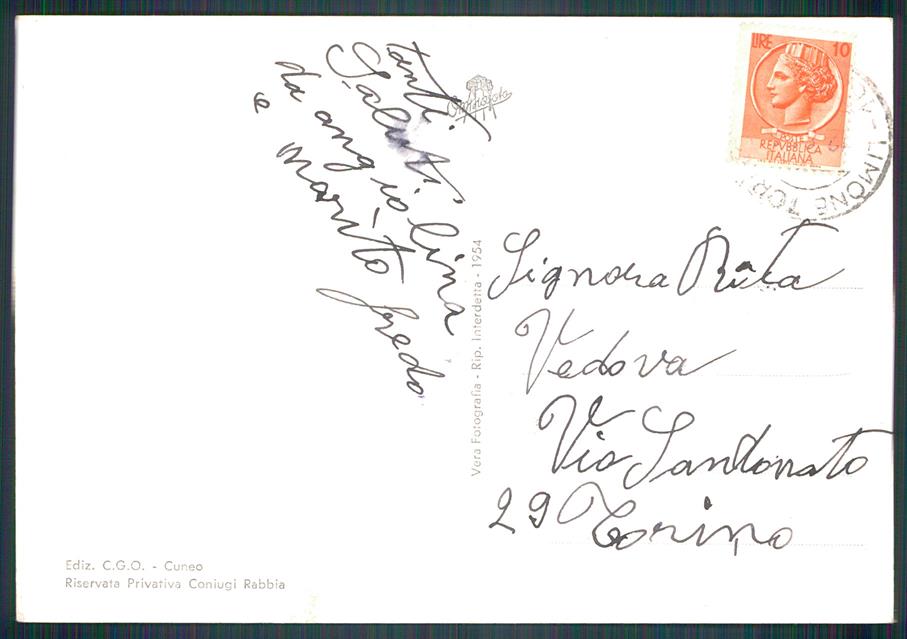 tanti
Saluti
da angiolina
e marito fredo
Omniafoto
LIRE 10
POSTE
REPVBBLICA
ITALIANA
LIMONE TORI
Vera Fotografia - Rip. Interdetta - 1954
Signora Rita
Vedova
Via Sandonato
29 Torino
Ediz. C.G.O. - Cuneo
Riservata Privativa Coniugi Rabbia